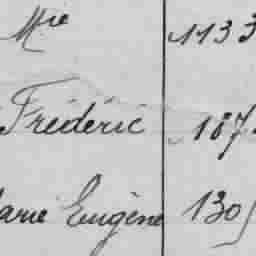 Mie 1133
Frédéric 187
Marie Eugène 130